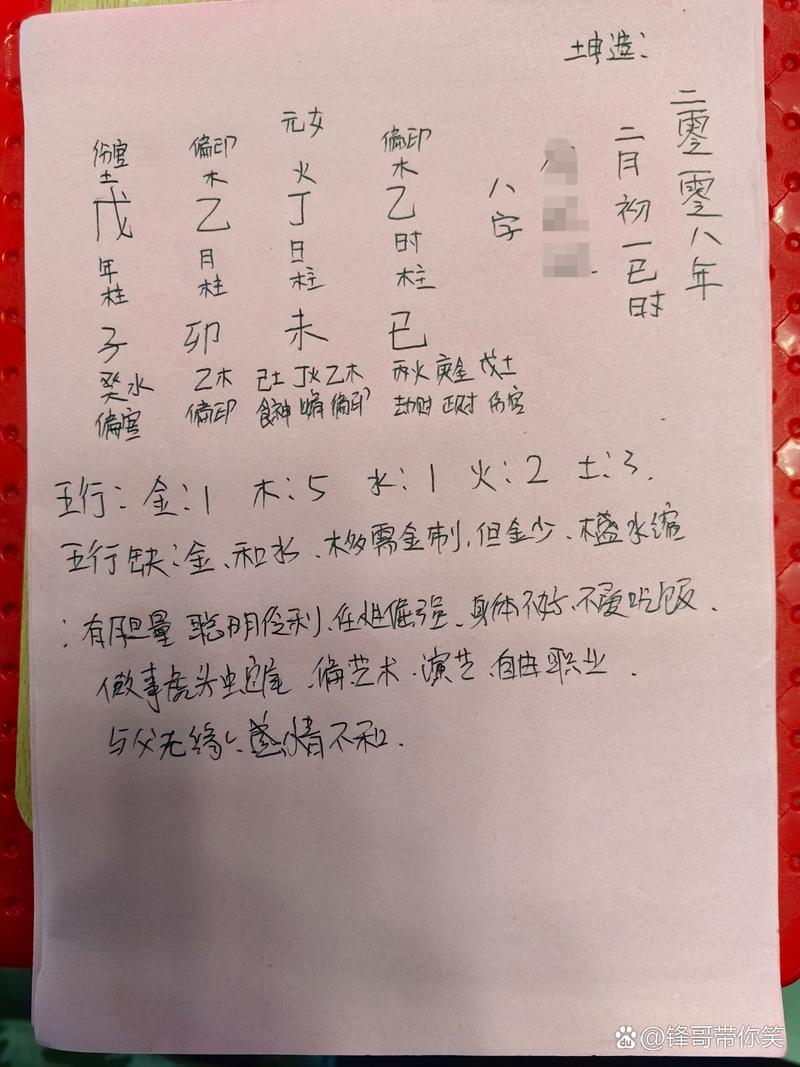 坤造:
二零零八年
二月初一巳时
八字
伤官 偏印 元女 偏印
土 木 火 木
戊 乙 丁 乙
年柱 月柱 日柱 时柱
子 卯 未 巳
癸水 乙木 己土 丁火 乙木 丙火 庚金 戊土
偏官 偏印 食神 比肩 偏印 劫财 正财 伤官
五行: 金:1 木:5 水:1 火:2 土:3.
五行缺:金、和水、木多需金制,但金少、木盛水缩
:有胆量 聪明伶利、任性倔强、身体不好、不爱吃饭.
做事虎头蛇尾、偏艺术、演艺、自由职业.
与父无缘、感情不和.
@锋哥带你笑